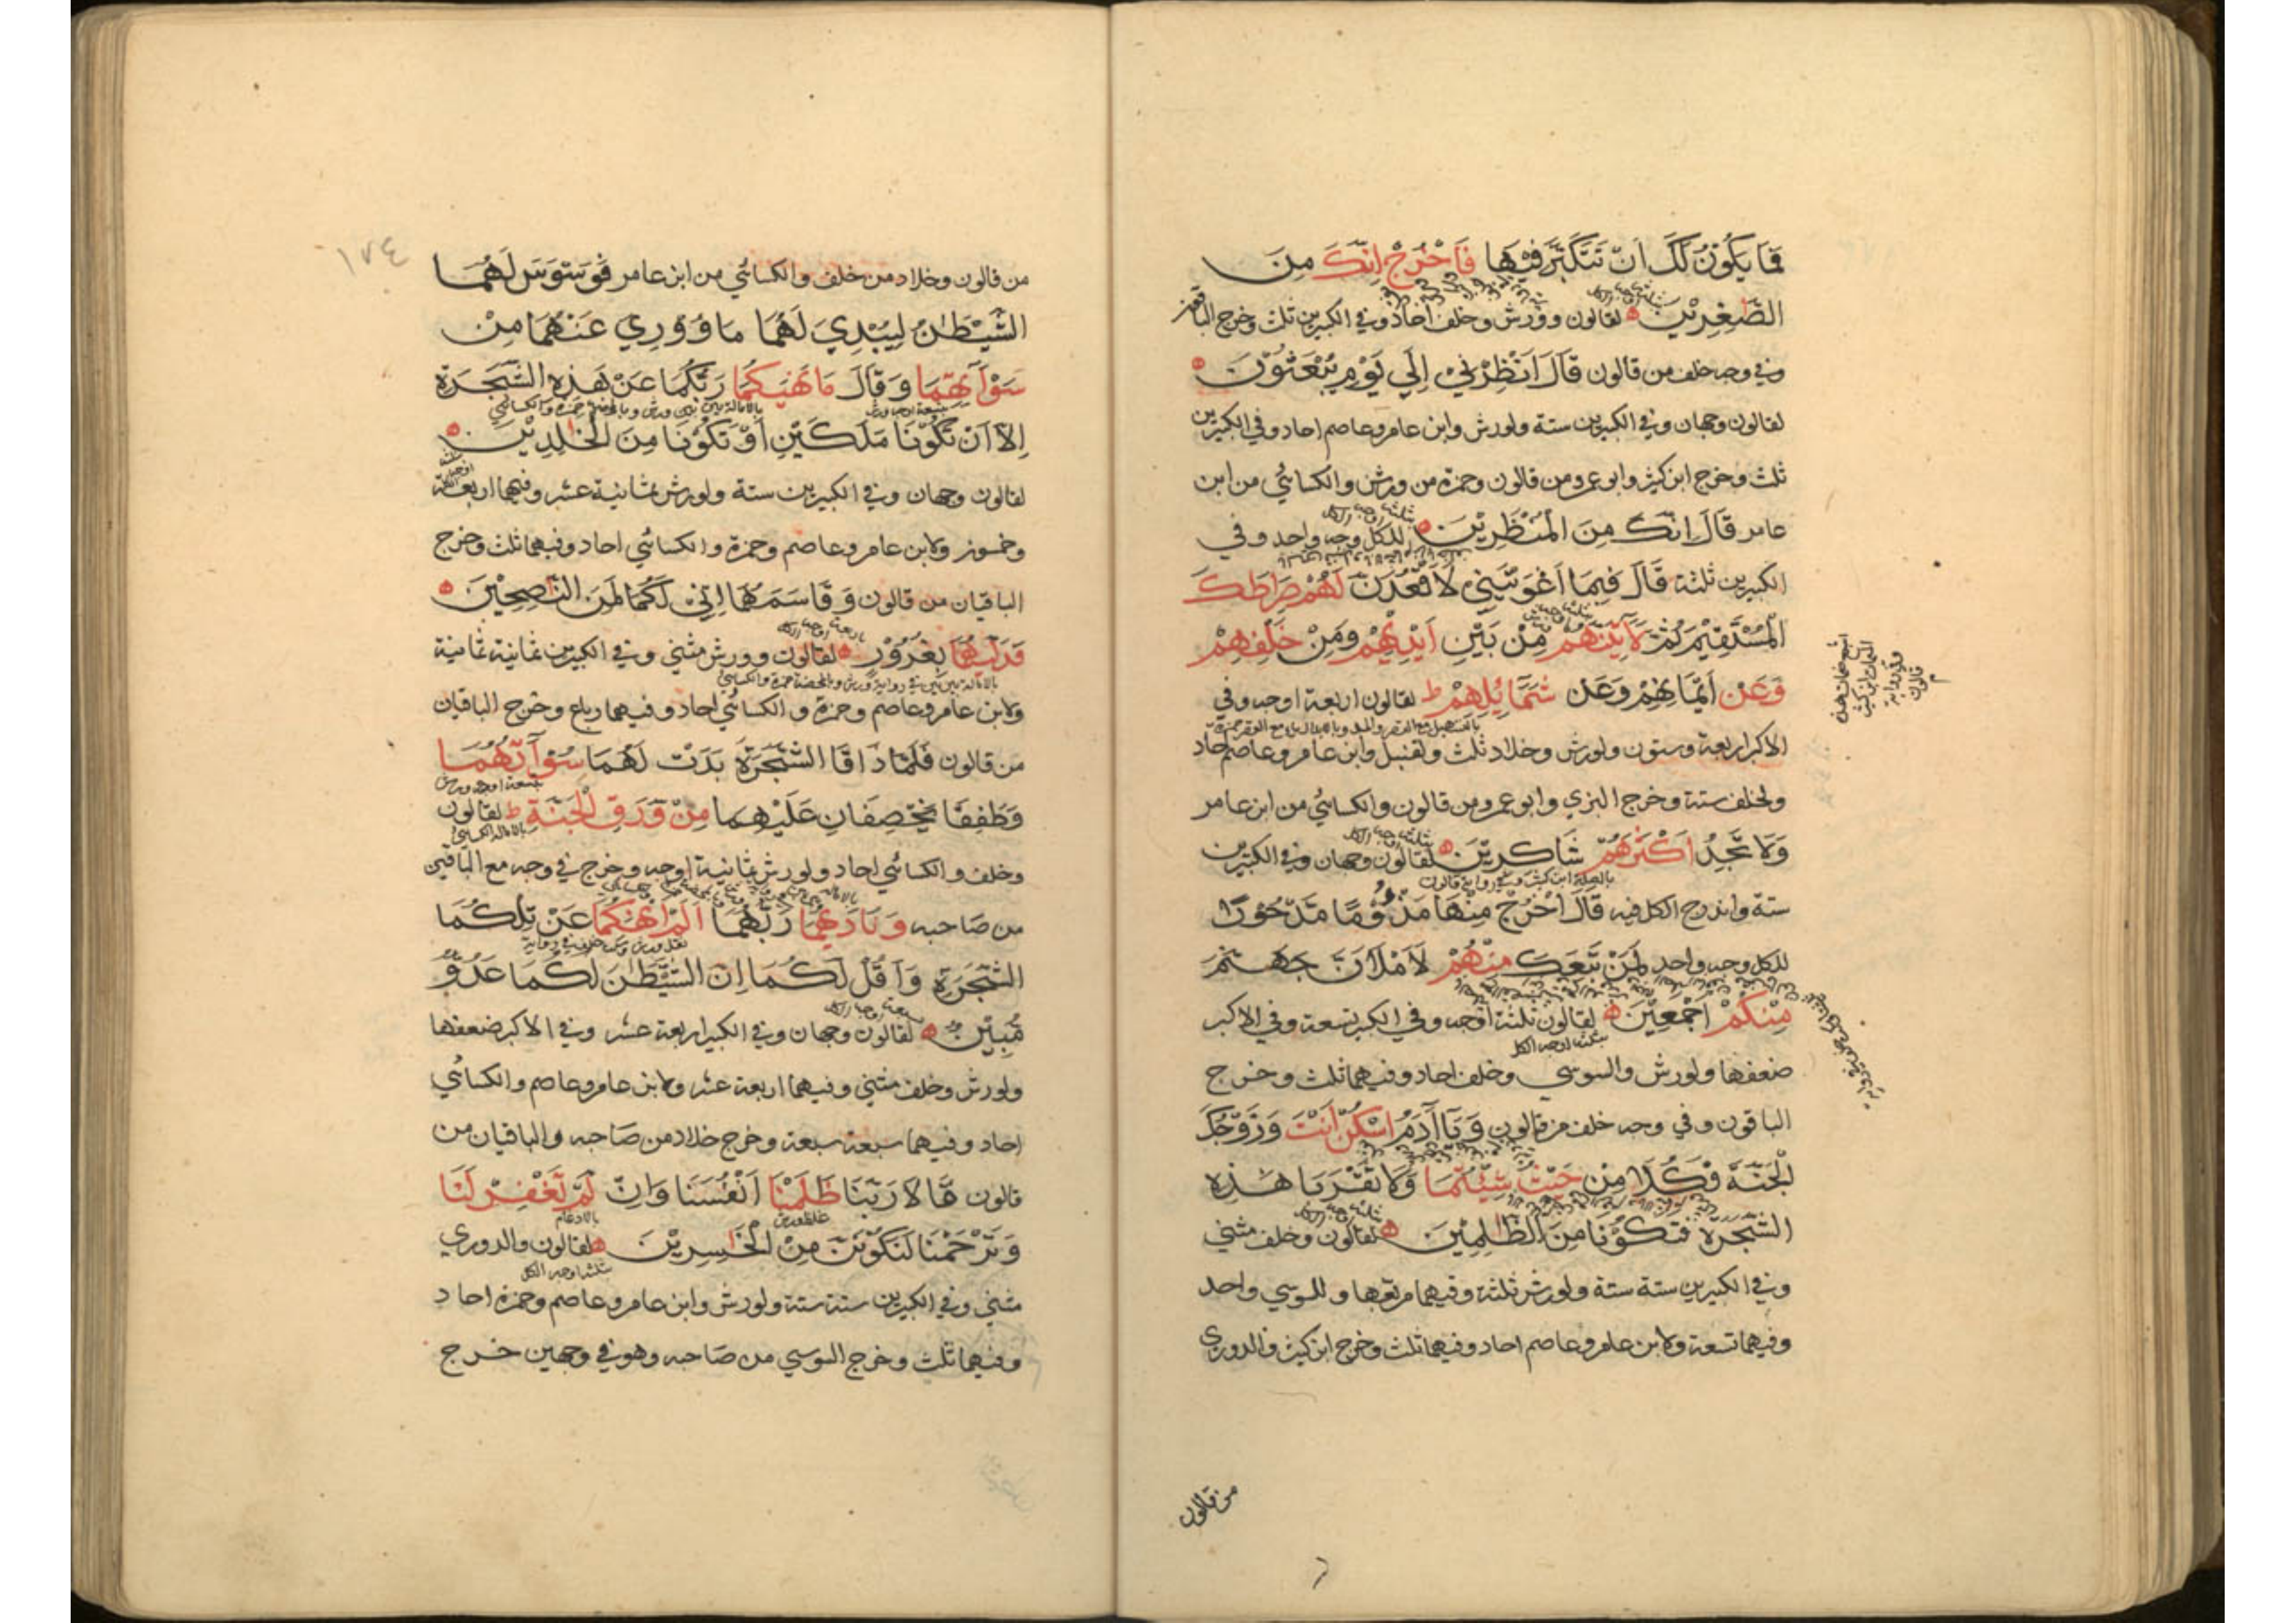 فما يكون لك ان تتكبر فيها فاخرج انك من
الصغرين لقالون وورش وخلف احاد وفي الكبيرين ثلث وخرج الباقون
وفي وجه خلف من قالون قال انظرني الي يوم يبعثون
لقالون وجهان وفي الكبيرين ستة ولورش وابن عامر وعاصم احاد وفي الكبيرين
ثلث وخرج ابن كثير وابو عمرو من قالون وحمزة من ورش والكسائي من ابن
عامر قال انك من المنظرين للكل وجه واحد وفي
الكبيرين ثلثة قال فبما اغويتني لاقعدن لهم صراطك
المستقيم ثم لاتينهم من بين ايديهم ومن خلفهم
وعن ايمانهم وعن شمائلهم ط لقالون اربعة اوجه وفي
الاكبر اربعة وستون ولورش وخلاد ثلث ولقنبل وابن عامر وعاصم احاد
ولخلف ستة وخرج البزي وابو عمرو من قالون والكسائي من ابن عامر
ولا تجد اكثرهم شاكرين لقالون وجهان وفي الكبيرين
ستة واندرج الكل فيه قال اخرج منها مذؤما مدحورا
للكل وجه واحد لمن تبعك منهم لاملان جهنم
منكم اجمعين لقالون ثلثة اوجه وفي الكبير تسعة وفي الاكبر
ضعفها ولورش والسوسي وخلف احاد وفيهما ثلث وخرج
الباقون وفي وجه خلف من قالون ويا ادم اسكن انت وزوجك
الجنة فكلا من حيث شئتما ولا تقربا هذه
الشجرة فتكونا من الظلمين لقالون وخلف مثني
وفي الكبيرين ستة ستة ولورش ثلثة وفيهما مربعها وللسوسي واحد
وفيهما تسعة ولابن عامر وعاصم احاد وفيهما ثلث وخرج ابن كثير والدوري
من قالون
١٧٤
من قالون وخلاد من خلف والكسائي من ابن عامر فوسوس لهما
الشيطن ليبدي لهما ما ووري عنهما من
سوآتهما وقال ما نهيكما ربكما عن هذه الشجرة
الا ان تكونا ملكين او تكونا من الخلدين
لقالون وجهان وفي الكبيرين ستة ولورش ثمانية عشر وفيهما اربعة
وخمسون ولابن عامر وعاصم وحمزة والكسائي احاد وفيهما ثلث وخرج
الباقيان من قالون وقاسمهما اني لكما لمن الناصحين
فدليهما بغرور لقالون وورش مثني وفي الكبيرين ثمانية ثمانية
ولابن عامر وعاصم وحمزة والكسائي احاد وفيهما رباع وخرج الباقيان
من قالون فلما ذاقا الشجرة بدت لهما سوآتهما
وطفقا يخصفان عليهما من ورق الجنة ط لقالون
وخلف والكسائي احاد ولورش ثمانية اوجه وخرج في وجه مع الباقين
من صاحبه وناديهما ربهما الم انهكما عن تلكما
الشجرة واقل لكما ان الشيطن لكما عدو
مبين لقالون وجهان وفي الكبير اربعة عشر وفي الاكبر ضعفها
ولورش وخلف مثني وفيهما اربعة عشر ولابن عامر وعاصم والكسائي
احاد وفيهما سبعة سبعة وخرج خلاد من صاحبه والباقيان من
قالون قالا ربنا ظلمنا انفسنا وان لم تغفر لنا
وترحمنا لنكونن من الخسرين لقالون والدوري
مثني وفي الكبيرين ستة ستة ولورش وابن عامر وعاصم وحمزة احاد
وفيهما ثلث وخرج السوسي من صاحبه وهو في وجهين خرج